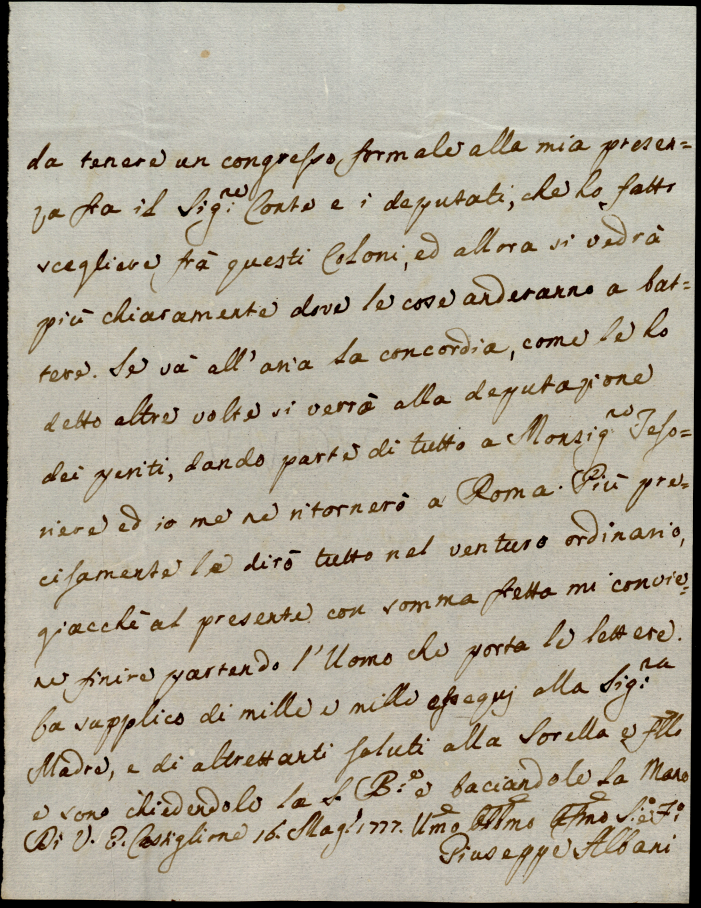 da tenere un congresso formale alla mia presen=
za fra il Sig:re Conte e i deputati, che ho fatto
scegliere frà questi Coloni, ed allora si vedrà
più chiaramente dove le cose anderanno a bat=
tere. Se và all'aria la concordia, come le ho
detto altre volte si verrà alla deputazione
dei periti, dando parte di tutto a Monsig:re Teso=
riere ed io me ne ritornerò a Roma. Più pre=
cisamente le dirò tutto nel venturo ordinario,
giacchè al presente con somma fretta mi convie=
ne finire partendo l'Uomo che porta le lettere.
La supplico di mille e mille essequj alla Sig:ra
Madre, e di altrettanti saluti alla Sorella e
e sono chiedendole la S. B.e e baciandole la Mano
Di V. E. Castiglione 16. Mag: 1777. Umo Obmo S.e e F.o
Giuseppe Albani